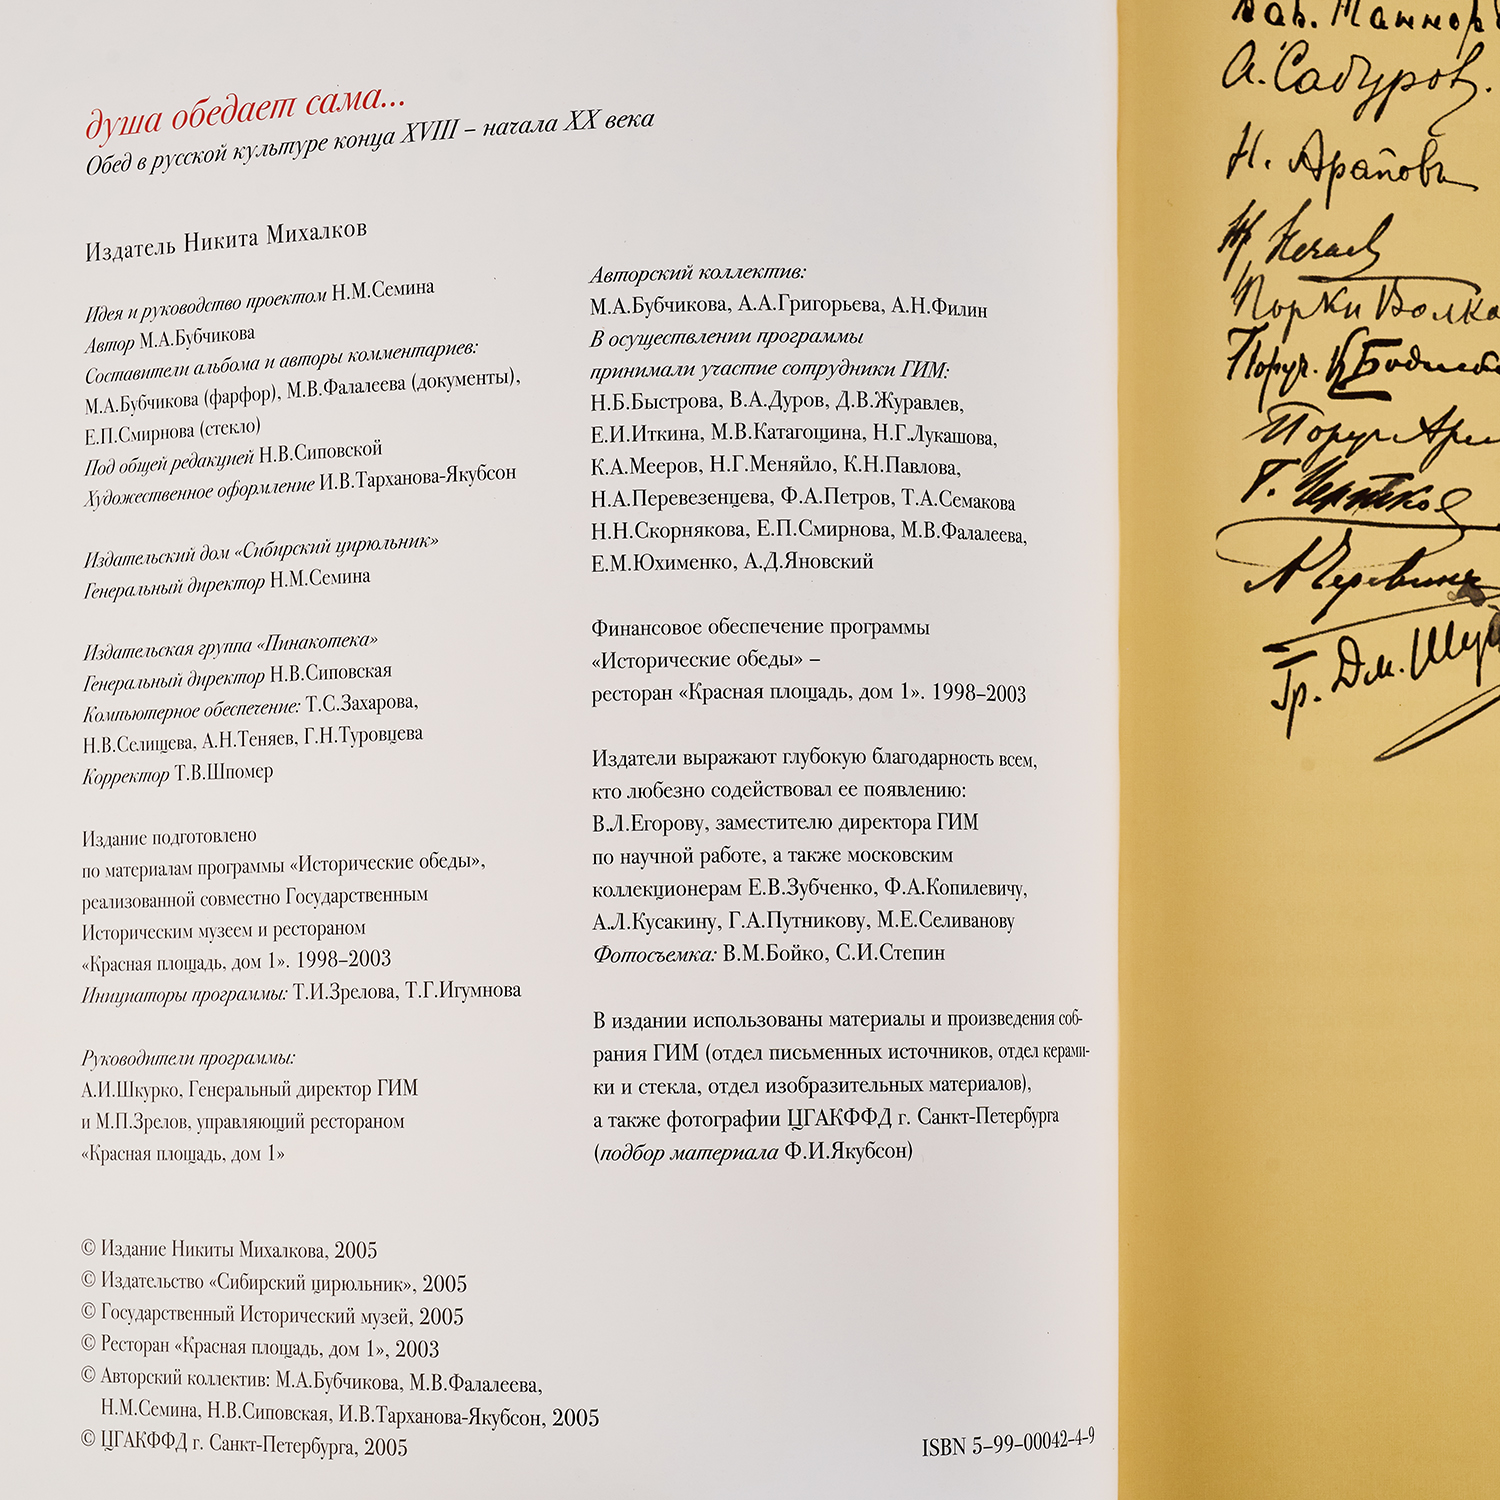 душа обедает сама...
Обед в русской культуре конца XVIII – начала XX века
Издатель Никита Михалков
Идея и руководство проектом Н.М.Семина
Автор М.А.Бубчикова
Составители альбома и авторы комментариев:
М.А.Бубчикова (фарфор), М.В.Фалалеева (документы),
Е.П.Смирнова (стекло)
Под общей редакцией Н.В.Сиповской
Художественное оформление И.В.Тарханова-Якубсон
Издательский дом «Сибирский цирюльник»
Генеральный директор Н.М.Семина
Издательская группа «Пинакотека»
Генеральный директор Н.В.Сиповская
Компьютерное обеспечение: Т.С.Захарова,
Н.В.Селищева, А.Н.Теняев, Г.Н.Туровцева
Корректор Т.В.Шпомер
Издание подготовлено
по материалам программы «Исторические обеды»,
реализованной совместно Государственным
Историческим музеем и рестораном
«Красная площадь, дом 1». 1998–2003
Инициаторы программы: Т.И.Зрелова, Т.Г.Игумнова
Руководители программы:
А.И.Шкурко, Генеральный директор ГИМ
и М.П.Зрелов, управляющий рестораном
«Красная площадь, дом 1»
Авторский коллектив:
М.А.Бубчикова, А.А.Григорьева, А.Н.Филин
В осуществлении программы
принимали участие сотрудники ГИМ:
Н.Б.Быстрова, В.А.Дуров, Д.В.Журавлев,
Е.И.Иткина, М.В.Катагощина, Н.Г.Лукашова,
К.А.Мееров, Н.Г.Меняйло, К.Н.Павлова,
Н.А.Перевезенцева, Ф.А.Петров, Т.А.Семакова
Н.Н.Скорнякова, Е.П.Смирнова, М.В.Фалалеева,
Е.М.Юхименко, А.Д.Яновский
Финансовое обеспечение программы
«Исторические обеды» –
ресторан «Красная площадь, дом 1». 1998–2003
Издатели выражают глубокую благодарность всем,
кто любезно содействовал ее появлению:
В.Л.Егорову, заместителю директора ГИМ
по научной работе, а также московским
коллекционерам Е.В.Зубченко, Ф.А.Копилевичу,
А.Л.Кусакину, Г.А.Путникову, М.Е.Селиванову
Фотосъемка: В.М.Бойко, С.И.Степин
В издании использованы материалы и произведения соб-
рания ГИМ (отдел письменных источников, отдел керами-
ки и стекла, отдел изобразительных материалов),
а также фотографии ЦГАКФФД г. Санкт-Петербурга
(подбор материала Ф.И.Якубсон)
© Издание Никиты Михалкова, 2005
© Издательство «Сибирский цирюльник», 2005
© Государственный Исторический музей, 2005
© Ресторан «Красная площадь, дом 1», 2003
© Авторский коллектив: М.А.Бубчикова, М.В.Фалалеева,
Н.М.Семина, Н.В.Сиповская, И.В.Тарханова-Якубсон, 2005
© ЦГАКФФД г. Санкт-Петербурга, 2005
ISBN 5–99–00042-4-9
А. Сабуров.
Н. Араповъ
Т. Чертков
А Черевинъ
Гр. Дм.